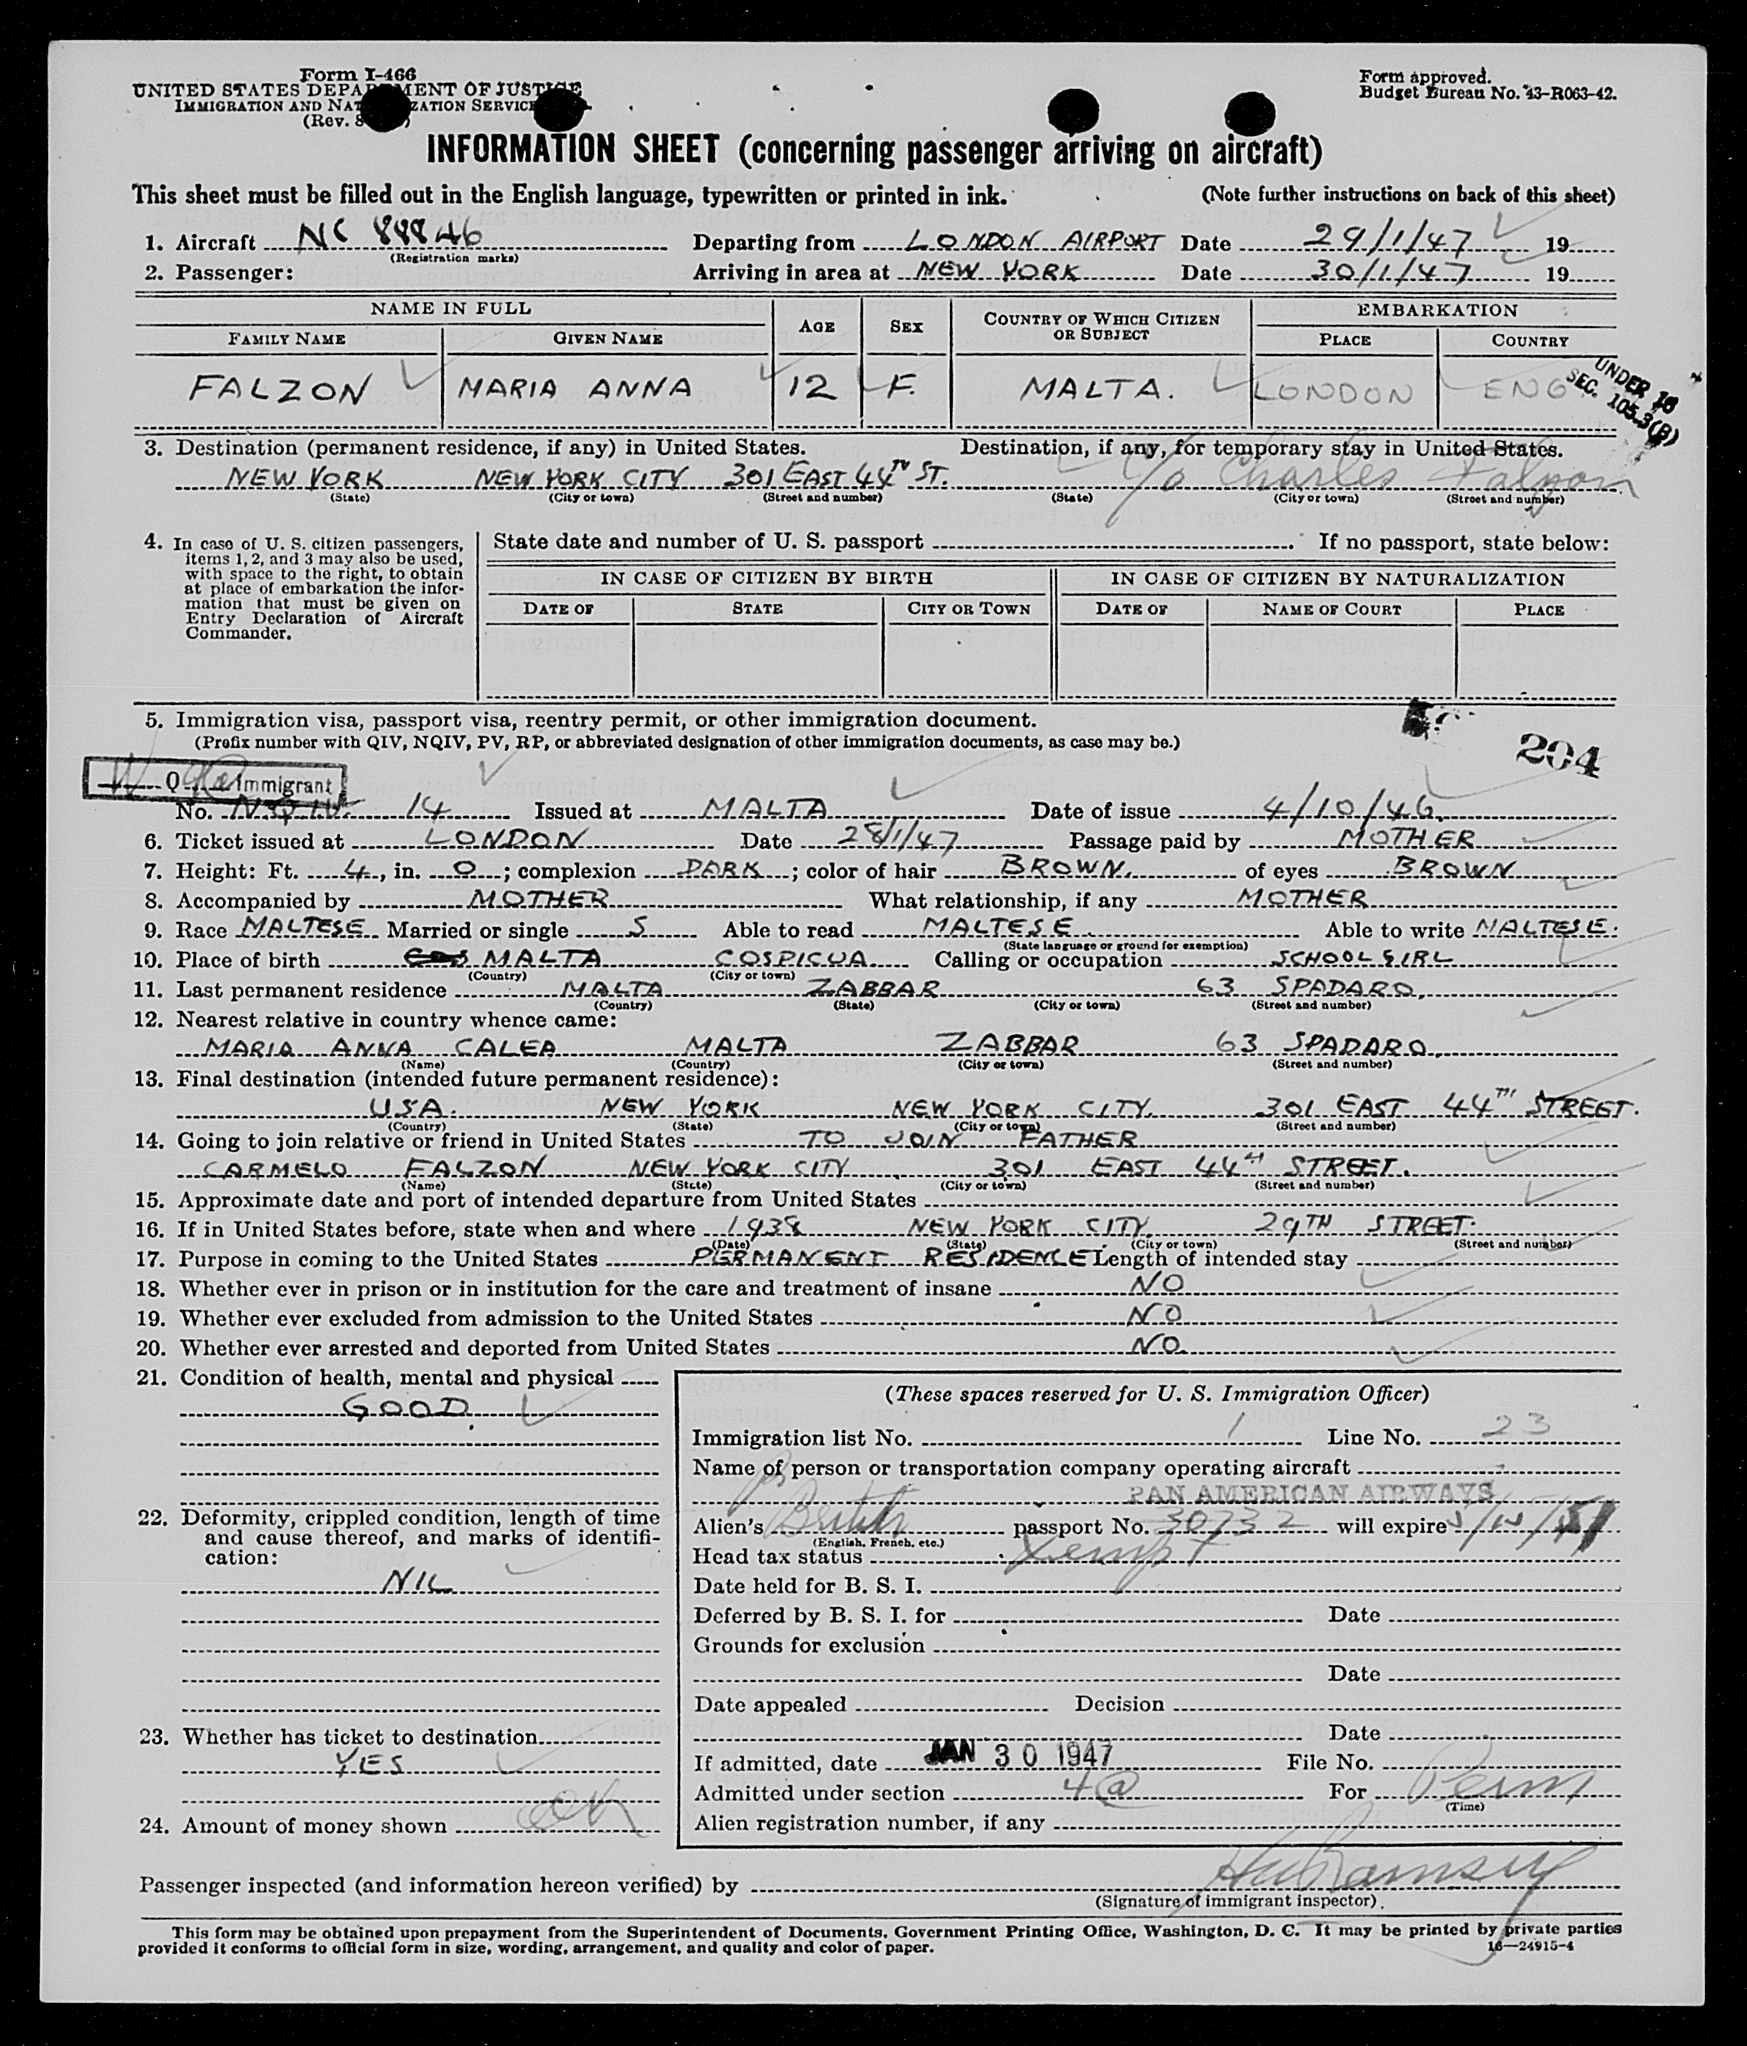 Form I-466
UNITED STATES DEPARTMENT OF JUSTICE
IMMIGRATION AND NATURALIZATION SERVICE
(Rev.
Form approved.
Budget Bureau No. 43-R063-42.
INFORMATION SHEET (concerning passenger arriving on aircraft)
This sheet must be filled out in the English language, typewritten or printed in ink. (Note further instructions on back of this sheet)
1. Aircraft NC 88846 Departing from LONDON AIRPORT Date 29/1/47 19
(Registration marks)
2. Passenger: Arriving in area at NEW YORK Date 30/1/47 19
NAME IN FULL AGE SEX COUNTRY OF WHICH CITIZEN OR SUBJECT EMBARKATION
FAMILY NAME GIVEN NAME PLACE COUNTRY
FALZON MARIA ANNA 12 F. MALTA. LONDON ENG
UNDER 16
SEC. 105.3(B)
3. Destination (permanent residence, if any) in United States. Destination, if any, for temporary stay in United States.
NEW YORK NEW YORK CITY 301 EAST 44TH ST. c/o Charles Falzon
(State) (City or town) (Street and number) (State) (City or town) (Street and number)
4. In case of U. S. citizen passengers,
items 1, 2, and 3 may also be used,
with space to the right, to obtain
at place of embarkation the infor-
mation that must be given on
Entry Declaration of Aircraft
Commander.
State date and number of U. S. passport . If no passport, state below:
IN CASE OF CITIZEN BY BIRTH IN CASE OF CITIZEN BY NATURALIZATION
DATE OF STATE CITY OR TOWN DATE OF NAME OF COURT PLACE
5. Immigration visa, passport visa, reentry permit, or other immigration document.
(Prefix number with QIV, NQIV, PV, RP, or abbreviated designation of other immigration documents, as case may be.)
204
Q Immigrant
No. N.Q.I.V. 14 Issued at MALTA Date of issue 4/10/46.
6. Ticket issued at LONDON Date 28/1/47 Passage paid by MOTHER
7. Height: Ft. 4, in. 0; complexion DARK; color of hair BROWN. of eyes BROWN
8. Accompanied by MOTHER What relationship, if any MOTHER
9. Race MALTESE Married or single S Able to read MALTESE. Able to write MALTESE.
(State language or ground for exemption)
10. Place of birth MALTA COSPICUA Calling or occupation SCHOOL GIRL
(Country) (City or town)
11. Last permanent residence MALTA ZABBAR 63 SPADARO.
(Country) (State) (City or town) (Street and number)
12. Nearest relative in country whence came:
MARIA ANNA CALEA MALTA ZABBAR 63 SPADARO.
(Name) (Country) (City or town) (Street and number)
13. Final destination (intended future permanent residence):
USA. NEW YORK NEW YORK CITY. 301 EAST 44TH STREET.
(Country) (State) (City or town) (Street and number)
14. Going to join relative or friend in United States TO JOIN FATHER
CARMELO FALZON NEW YORK CITY 301 EAST 44TH STREET.
(Name) (State) (City or town) (Street and number)
15. Approximate date and port of intended departure from United States
16. If in United States before, state when and where 1938 NEW YORK CITY. 29TH STREET.
(Date) (State) (City or town) (Street and number)
17. Purpose in coming to the United States PERMANENT RESIDENCE Length of intended stay
18. Whether ever in prison or in institution for the care and treatment of insane NO
19. Whether ever excluded from admission to the United States NO
20. Whether ever arrested and deported from United States NO.
21. Condition of health, mental and physical
GOOD
22. Deformity, crippled condition, length of time
and cause thereof, and marks of identifi-
cation:
NIL
23. Whether has ticket to destination
YES
24. Amount of money shown OK
(These spaces reserved for U. S. Immigration Officer)
Immigration list No. 1 Line No. 23
Name of person or transportation company operating aircraft
PAN AMERICAN AIRWAYS
Alien's British passport No. 30732 will expire
(English, French, etc.)
Head tax status Exempt
Date held for B. S. I.
Deferred by B. S. I. for Date
Grounds for exclusion
Date
Date appealed Decision
Date
If admitted, date JAN 30 1947 File No.
Admitted under section 4(a) For Perm
(Time)
Alien registration number, if any
Passenger inspected (and information hereon verified) by
(Signature of immigrant inspector).
This form may be obtained upon prepayment from the Superintendent of Documents, Government Printing Office, Washington, D. C. It may be printed by private parties
provided it conforms to official form in size, wording, arrangement, and quality and color of paper.
16—24915-4